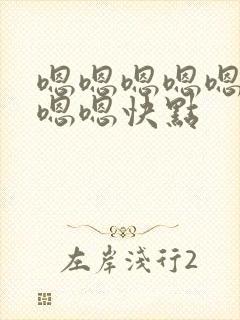 嗯嗯嗯嗯嗯
嗯嗯快點
左岸淺行2